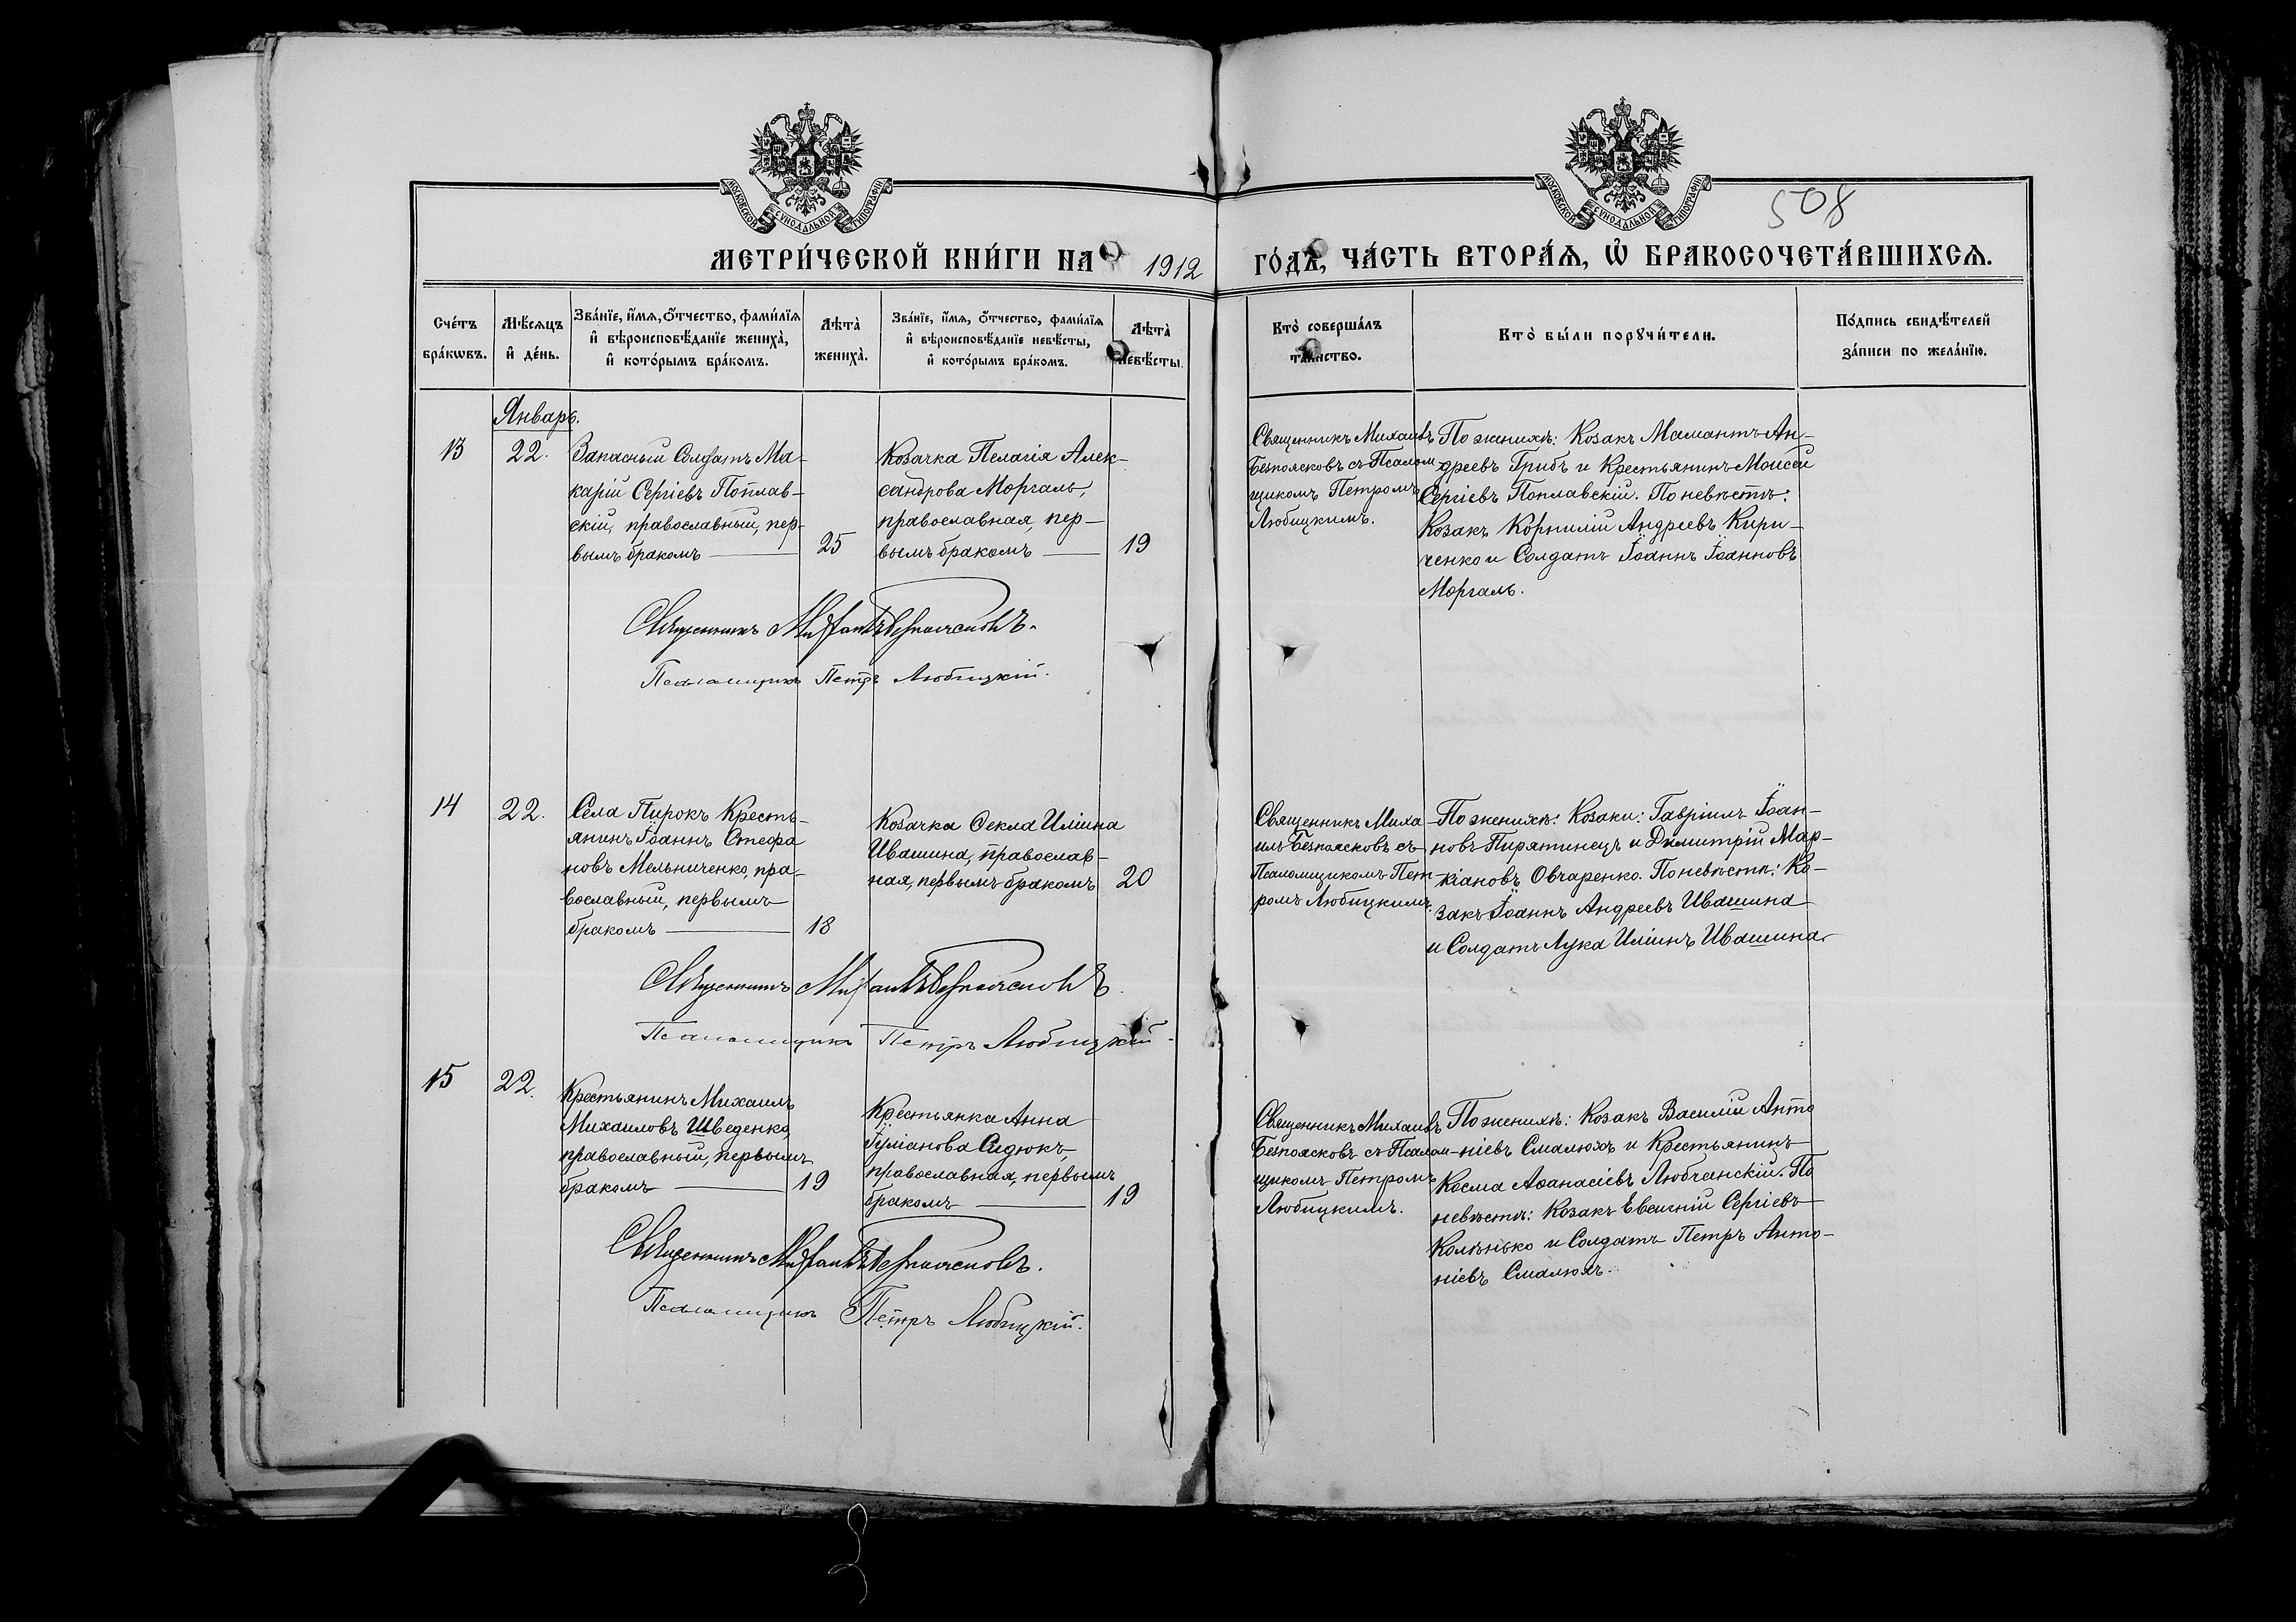 МОСКОВСКОЙ СУНОДАЛЬНОЙ ТИПОГРАФІИ
МОСКОВСКОЙ СУНОДАЛЬНОЙ ТИПОГРАФІИ
508
МЕТРИ́ЧЕСКОЙ КНИ́ГИ НА 1912 ГО́ДЪ, ЧА́СТЬ ВТОРА́Ѧ, Ѡ҆ БРАКОСОЧЕТА́ВШИХСѦ.
Сче́тъ
бра́кѡвъ.
Мѣ́сѧцъ
и҆ де́нь.
Зва́нїе, и҆́мѧ, ѻ҆́тчество, фами́лїѧ
и҆ вѣроисповѣ́данїе жениха̀,
и҆ кото́рымъ бра́комъ.
Лѣта̀
жениха̀.
Зва́нїе, и҆́мѧ, ѻ҆́тчество, фами́лїѧ
и҆ вѣроисповѣ́данїе невѣ́сты,
и҆ кото́рымъ бра́комъ.
Лѣта̀
невѣ́сты.
Кто̀ соверша́лъ
та́инство.
Кто̀ бы́ли порꙋчи́тели.
По́дпись свидѣ́телей
за́писи по жела́нїю.
Январь.
13
22.
Запасный Солдатъ Ма-
карій Сергіевъ Поплав-
скій, православный, пер-
вымъ бракомъ
25
Козачка Пелагія Алек-
сандрова Моргаль,
православная, пер-
вымъ бракомъ
19
Священникъ Михаилъ
Безпоясковъ съ Псалом
щикомъ Петромъ
Любицкимъ.
По женихѣ: Козакъ Мамантъ Ан-
дреевъ Грибъ и Крестьянинъ Моисей
Сергіевъ Поплавскій. По невѣстѣ:
Козакъ Корнилій Андреевъ Кири-
ченко и Солдатъ Іоаннъ Іоанновъ
Моргаль.
Священникъ Михаилъ Безпоясковъ.
Псаломщикъ Петръ Любицкій.
14
22.
Села Пирокъ Кресть-
янинъ Іоаннъ Стефа
новъ Мельниченко, пра-
вославный, первымъ
бракомъ
18
Козачка Ѳекла Иліина
Ивашина, православ-
ная, первымъ бракомъ
20
Священникъ Миха
илъ Безпоясковъ съ
Псаломщикомъ Пет-
ромъ Любицкимъ.
По женихѣ: Козаки: Гавріилъ Іоан-
новъ Пирятинецъ и Димитрій Мар-
кіановъ Овчаренко. По невѣстѣ: Ко-
закъ Іоаннъ Андреевъ Ивашина
и Солдатъ Лука Иліинъ Ивашина.
Священникъ Михаилъ Безпоясковъ.
Псаломщикъ Петръ Любицкій.
15
22.
Крестьянинъ Михаилъ
Михаиловъ Шведенко,
православный, первымъ
бракомъ
19
Крестьянка Анна
Іуліанова Сидюкъ,
православная, первымъ
бракомъ
19
Священникъ Михаилъ
Безпоясковъ съ Псалом-
щикомъ Петромъ
Любицкимъ.
По женихѣ: Козакъ Василій Анто
ніевъ Смалюхъ и Крестьянинъ
Косма Аѳанасіевъ Любченскій. По
невѣстѣ: Козакъ Евсигній Сергіевъ
Колѣнько и Солдатъ Петръ Анто-
ніевъ Смалюхъ.
Священникъ Михаилъ Безпоясковъ.
Псаломщикъ Петръ Любицкій.